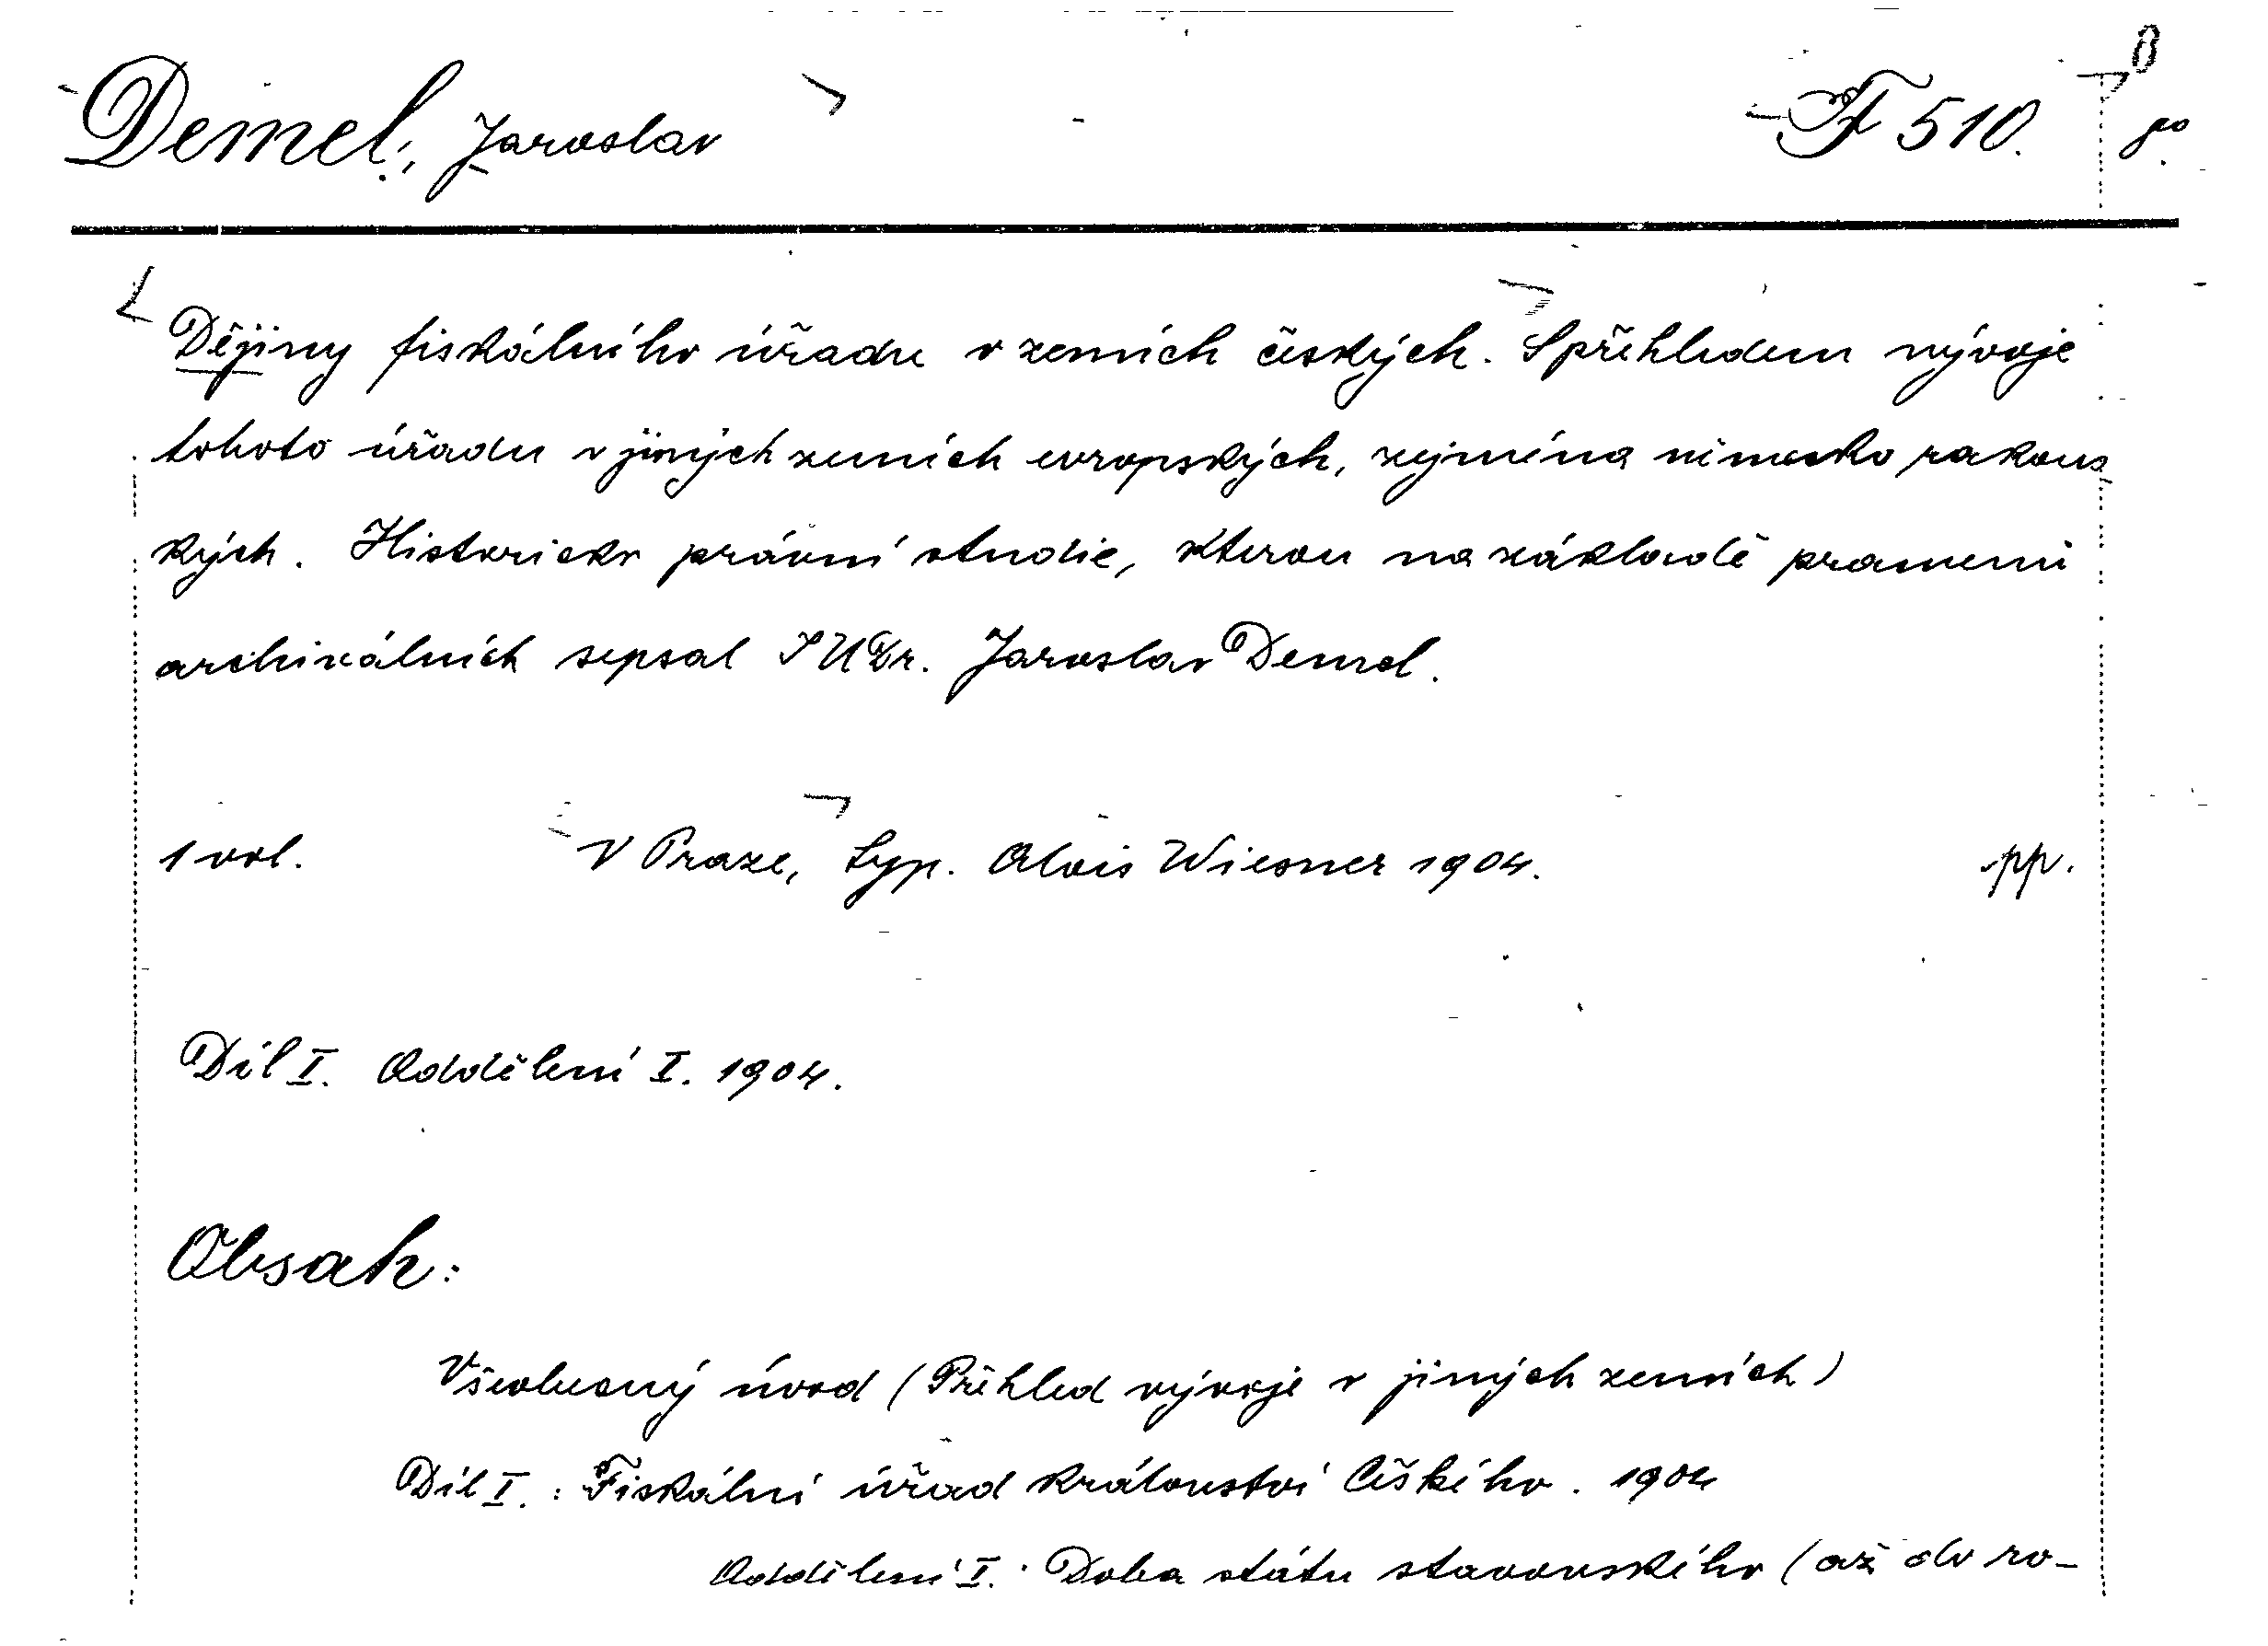 Demel, Jaroslav F 510. 8°
Dějiny fiskálního úřadu v zemích českých. S přehledem vývoje
tohoto úřadu v jiných zemích evropských, zejména německo rakous
kých. Historicko právní studie, kterou na základě pramenů
archiválních sepsal JUDr. Jaroslav Demel.
1 vol. V Praze, Typ. Alois Wiesner 1904. pp.
Díl I. Oddělení I. 1904.
Obsah:
Všeobecný úvod (Přehled vývoje v jiných zemích)
Díl I. : Fiskální úřad království Českého. 1904
Oddělení I. Doba státu stavovského (až do ro-